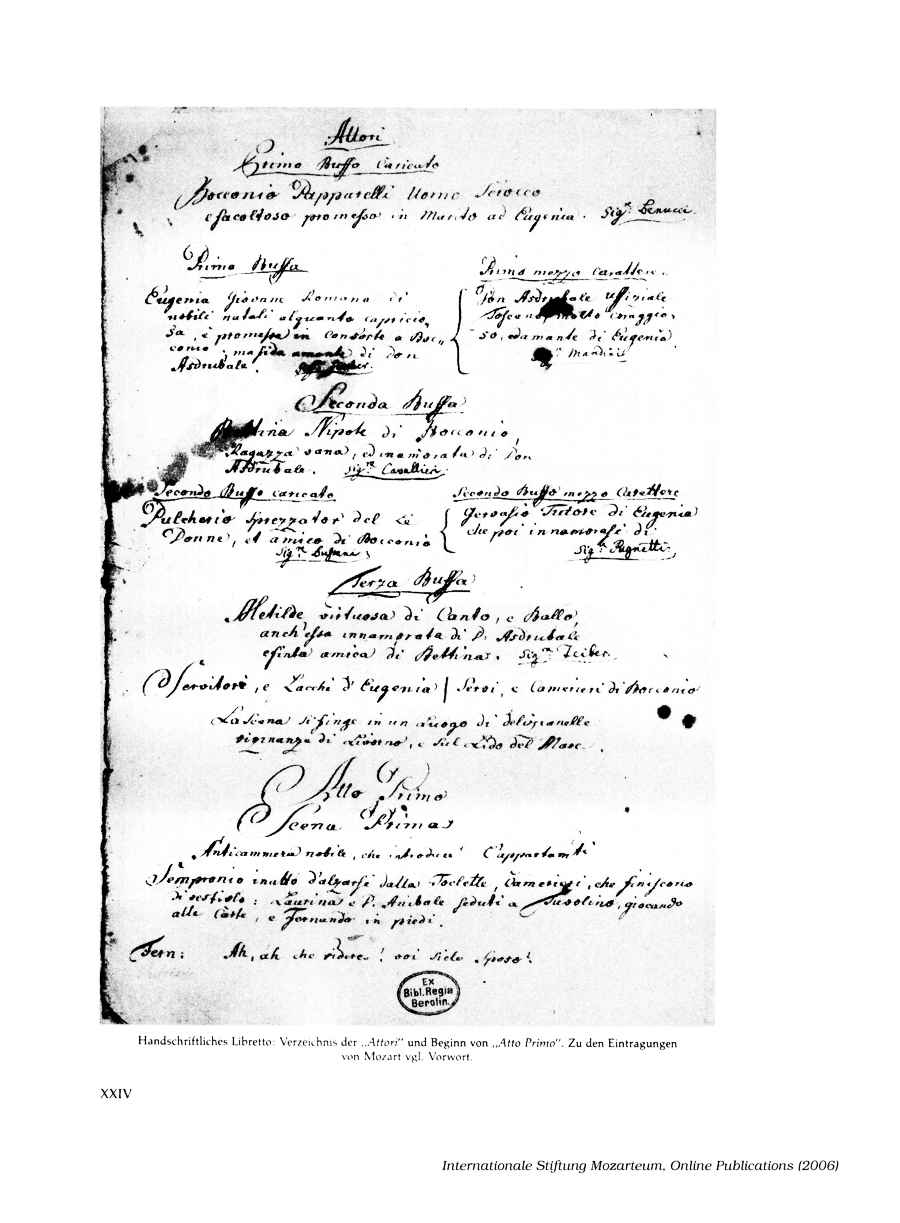 Attori
Primo Buffo Caricato
Bocconio Papparelli Uomo Sciocco
e facoltoso promesso in Marito ad Eugenia. Sig:r Benucci.
Prima Buffa
Eugenia Giovane Romana di
nobili natali alquanto capricio,
sa, è promessa in Consorte a Boc,,
conio; ma fida amante di Don
Asdrubale.
Primo mezzo Carattere.
Don Asdrubale Uffiziale
Toscano, molto coraggio,
so, ed amante di Eugenia
Mandini
Seconda Buffa
Bettina Nipote di Bocconio,
Ragazza vana, ed innamorata di Don
Asdrubale. Sig:ra Cavallieri
Secondo Buffo caricato
Pulcherio Sprezzator del le
Donne, et amico di Bocconio
Sig:r Bussani
Secondo Buffo mezzo Carattere
Gervasio Tutore di Eugenia
che poi innamorasi di
Sig:r Pugnetti
Terza Buffa
Metilde virtuosa di Canto, e Ballo,
anch'essa innamorata di D. Asdrubale
e finta amica di Bettina. Sig:ra Teiber
Servitori, e Lacchè d'Eugenia | Servi, e Camerieri di Bocconio
La Scena si finge in un Luogo di delizia nelle
vicinanze di Livorno, e sul Lido del Mare.
Atto Primo
Scena Prima
Anticammera nobile, che introduce
Sempronio in atto d'alzarsi dalla Toelette, Camerieri, che finiscono
di vestirlo: Laurina e D. Anibale seduti a Tavolino, giocando
alle Carte, e Fernando in piedi.
Fern: Ah, ah che ridere! voi siete Sposo!
Ex
Bibl. Regia
Berolin.
Handschriftliches Libretto: Verzeichnis der „Attori" und Beginn von „Atto Primo". Zu den Eintragungen
von Mozart vgl. Vorwort.
XXIV
Internationale Stiftung Mozarteum, Online Publications (2006)